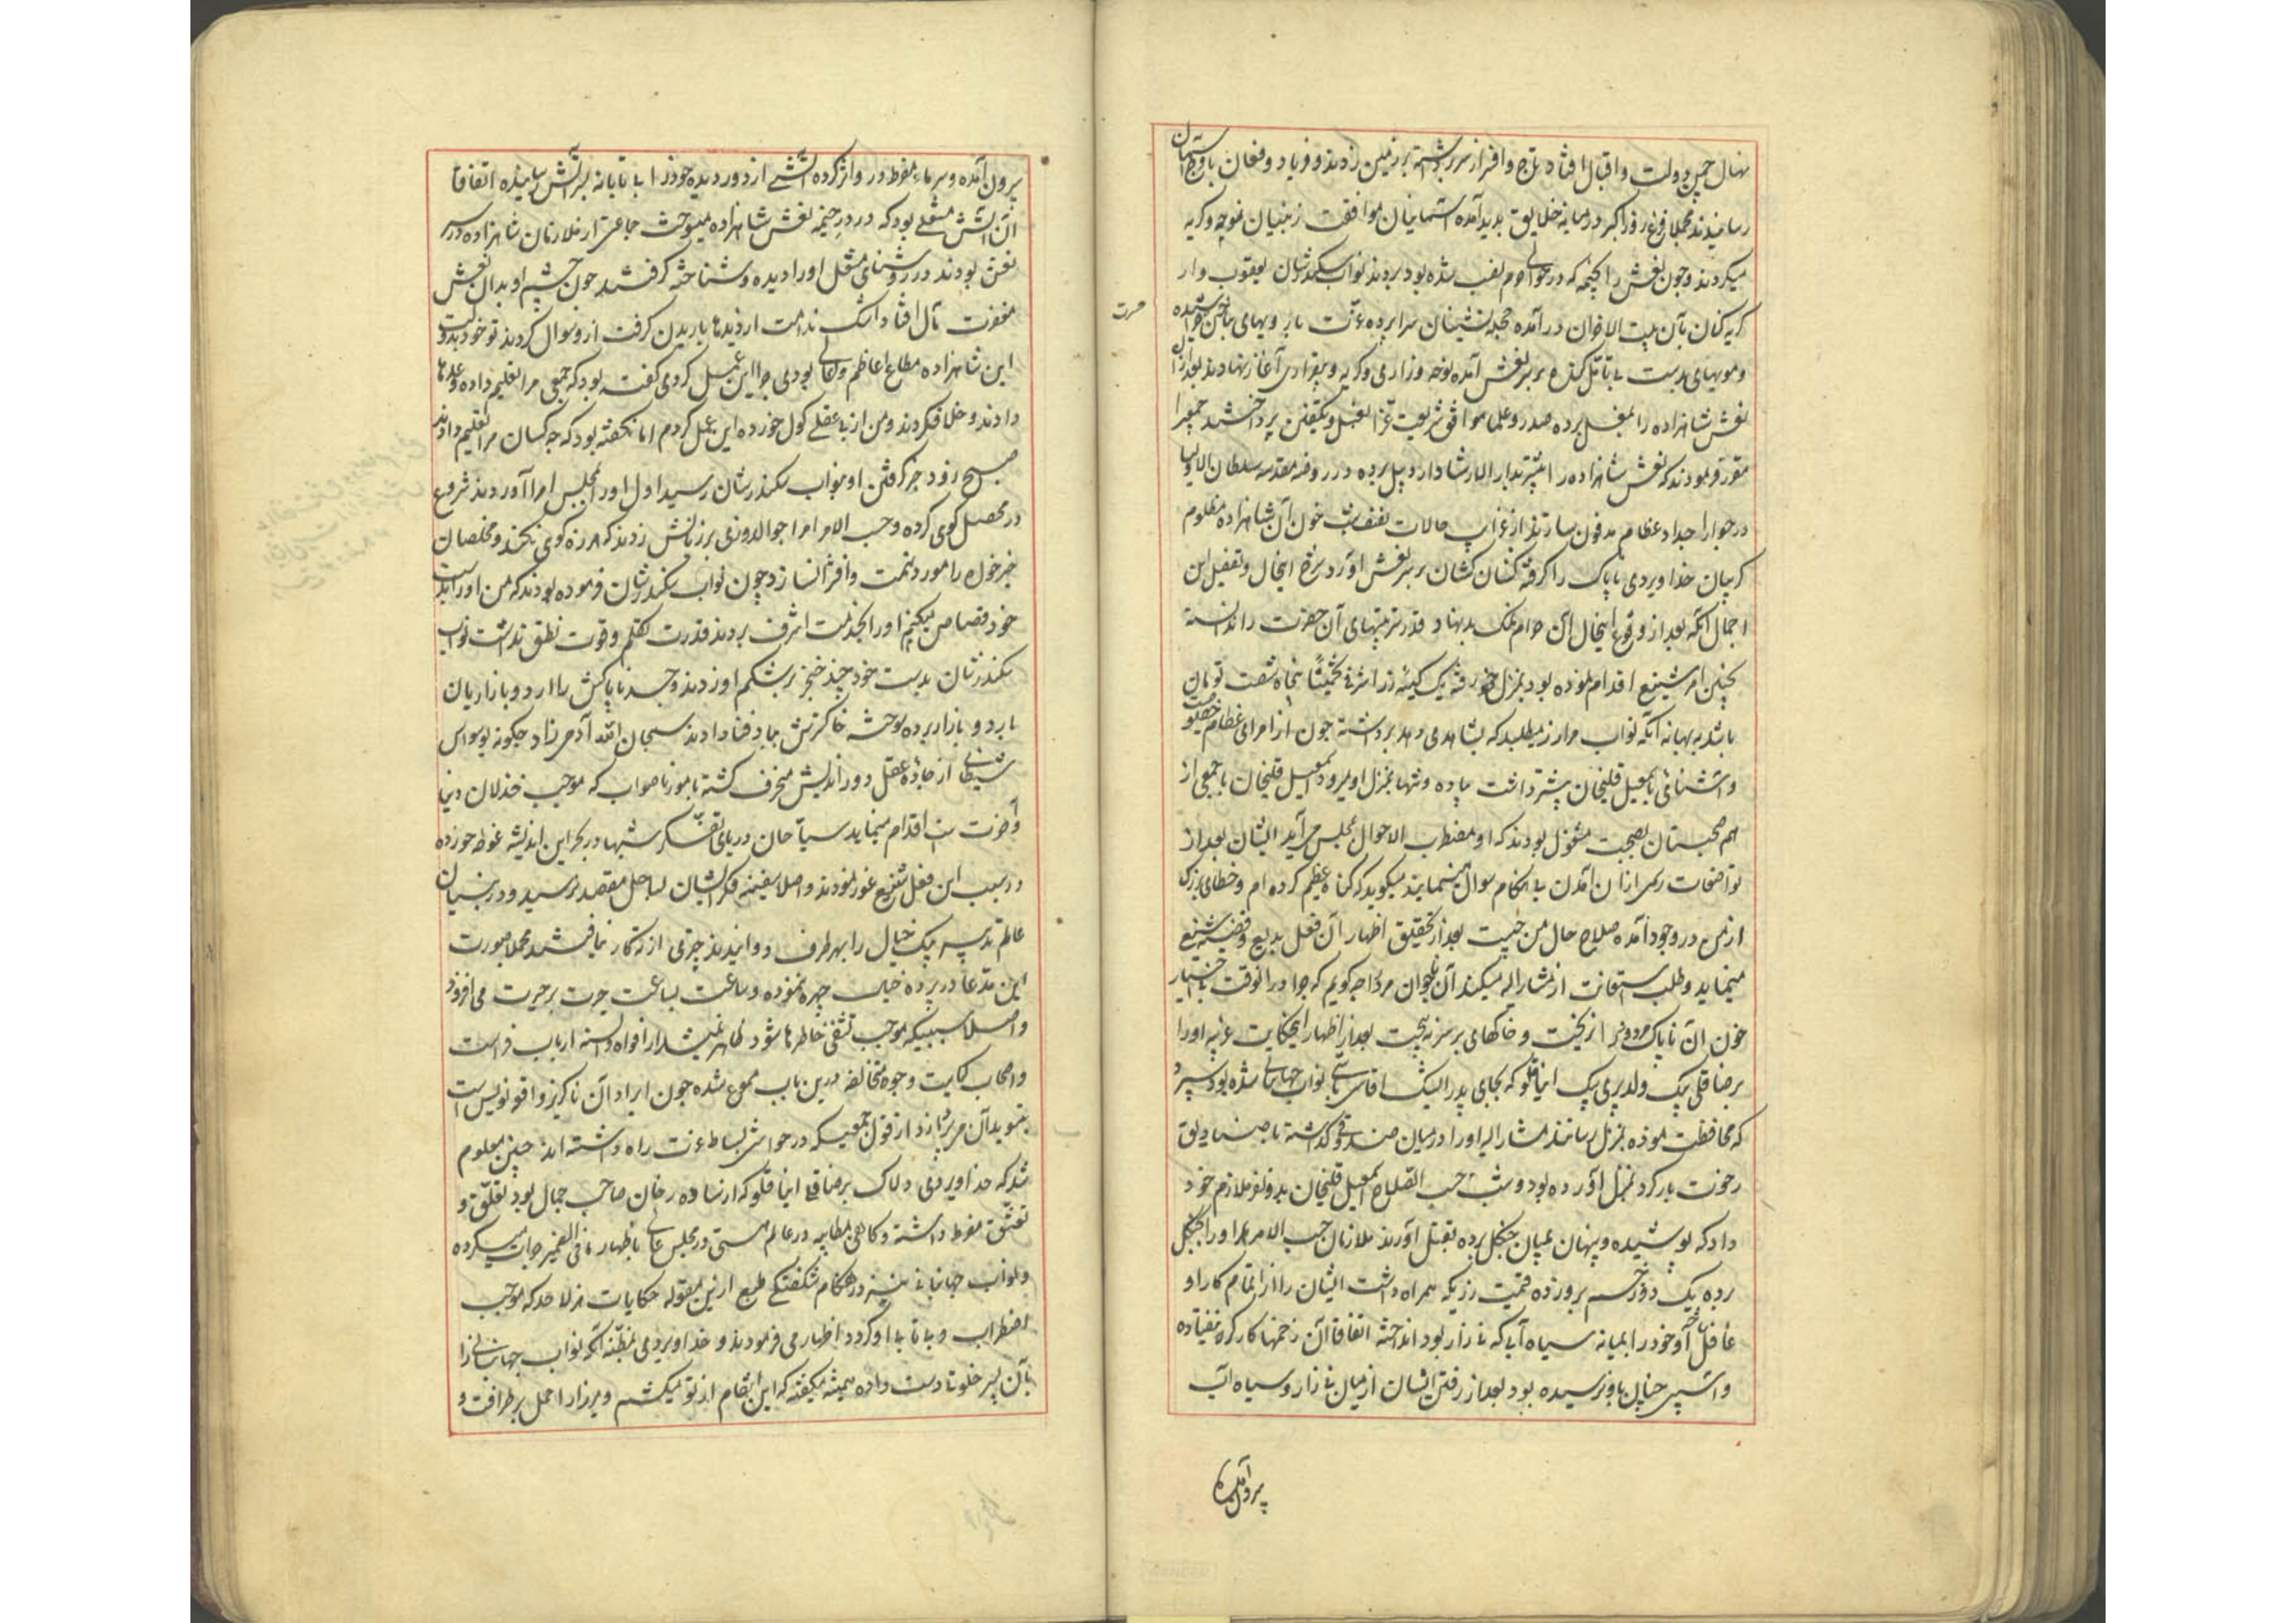 نهال چمن دولت و اقبال افتاد تاج و افسر از سر برداشته بر زمین زدند و فریاد و فغان باوج آسمان
رسانیدند مجملا فزع روز اکبر در میانه خلایق پدید آمده آسمانیان موافقت زمینیان نوحه و گریه
میکردند و چون نعش را بخیمه که در حوالی حرم نصب شده بود بردند نواب سکندرشان یعقوب وار
گریه کنان بآن بیت الاحزان درآمده حجله نشینان سراپرده عزت با رویهای بناخن خراشیده
حسرت
و مویهای بدست بر سر نعش آمده نوحه و زاری و گریه و بیقراری آغاز نهادند بعد از آن
نعش شاهزاده را بمغسل برده صدور و علما موافق شریعت غرا بغسل و تکفین پرداختند جمعی را
مقرر فرمودند که نعش شاهزاده را بدار الارشاد اردبیل برده در روضه مقدسه سلطان الاولیا
در جوار اجداد عظام مدفون سازند از غرایب حالات خون آن شاهزاده مظلوم
گریبان خداویردی ناپاک را گرفته کشان کشان بر سر نعش آورد شرح اینحال و تفصیل این
اجمال آنکه بعد از وقوع اینحال آن حرام نمک بدنهاد قدر تربیتهای آن حضرت را ندانسته
بچنین امر شنیع اقدام نموده بود بمنزل خود رفته یک کیسه زر اشرفی تخمینا پنجاه شصت تومان
باشد به بهانه آنکه نواب میرزا زر میطلبد که بشاهدی دهد برداشته چون از امرای عظام خصوصیت
و آشنائی باسمعیل قلیخان بیشتر داشت پیاده و تنها بمنزل او میرود اسمعیل قلیخان با جمعی از
هم صحبتان بصحبت مشغول بودند که او مضطرب الاحوال بمجلس می آید ایشان بعد از
تواضعات رسمی از آن آمدن بی هنگام سوال مینمایند میگوید که گناه عظیم کرده ام و خطای بزرگ
از من در وجود آمده صلاح حال من چیست بعد از تحقیق اظهار آن فعل بدیع و قضیه شنیع
مینماید و طلب استعانت از مشار الیه میکند آن نوجوان مرد را چگویم که چرا در آنوقت بی اختیار
خون آن ناپاک مردود را نریخت و خاکهای بر سر نه بیخت بعد از اظهار اینحکایت غریبه او را
برضا قلی بیک ولد پری بیک اینانلو که بجای پدر ایشک اقاسی باشی نواب جهانبانی شده بود سپرد
که محافظت نموده بمنزل رساند مشار الیه او را در میان صندوقی گذاشته با صنادیق
رخوت بار کرده بمنزل آورده بود و شب حسب الصلاح اسمعیل قلیخان بدو نفر ملازم خود
داد که پوشیده و پنهان بمیان جنگل برده بقتل آورند ملازمان حسب الامر او را بجنگل
برده یک دو زخم برو زده قیمت زریکه همراه داشت ایشان را از اتمام کار او
غافل ساخته او خود را بمیانه سیاه آبی که نی زار بود انداخته اتفاقا آن زخمها کارگر نیفتاده
و آسیبی چنان باو نرسیده بود بعد از رفتن ایشان از میان نی زار و سیاه آب
بیرون آمده
بیرون آمده و سرمای مفرط درو اثر کرده آتشی از دور دیده خود را بی تابانه بسر آتش رسانیده اتفاقا
آن آتش مشعلی بود که در در خیمه نعش شاهزاده میسوخت جماعتی از ملازمان شاهزاده در سر
نعش بودند در روشنای مشعل او را دیده و شناخته گرفتند چون چشم او بدان نعش
مغفرت مآل افتاد اشک ندامت از دیدها باریدن گرفت ازو سوال کردند تو خود بدولت
این شاهزاده مطاع اعاظم و اعالی بودی چرا این عمل کردی گفته بود که جمعی مرا تعلیم داده وعدها
دادند و خلاف کردند و من از بی عقلی گول خورده این عمل کردم اما نگفته بود که چه کسان مرا تعلیم دادند
صبح زود خبر گرفتن او بنواب سکندرشان رسید اول او را بمجلس امرا آوردند شروع
در مهمل گوی کرده و حسب الامر امرا جوالدوزی بر زبانش زدند که هرزه گوی نکند و مخلصان
خیرخواه را مورد تهمت و افترا نسازد چون نواب سکندرشان فرموده بودند که من او را بدست
خود قصاص میکنم او را بخدمت اشرف بردند قدرت تکلم و قوت نطق نداشت نواب
سکندرشان بدست خود چند خنجر بر شکم او زدند و جسد ناپاکش را اردو بازاریان
باردو بازار برده سوخته خاکسترش بباد فنا دادند سبحان الله آدمی زاد چگونه بوسواس
شیطانی از جاده عقل دوراندیش منحرف گشته بامور ناصواب که موجب خذلان دنیا
و آخرت است اقدام مینماید سیاحان دریای تفکر شبها در بحر این اندیشه غوطه خورده
در سبب این فعل شنیع غور نمودند و اصلا سفینه فکر ایشان بساحل مقصد نرسید و دوربینان
عالم تدبیر پیک خیال را بهر طرف دوانیدند چیزی ازین کار نیافتند مجملا صورت
این مدعا در پرده خیال چهره ننموده و ساعت بساعت حیرت بر حیرت می افزود
و اصلا سببیکه موجب تشفی خاطرها شود ظاهر نمیشد از افواه و السنه ارباب فراست
و اصحاب کیاست وجوه مخالفه درین باب مسموع شده چون ایراد آن ناگزیر واقعه نویس است
بتسوید آن می پردازد از قول جمعیکه در حواشی بساط عزت راه داشته اند چنین معلوم
شد که خداویردی دلاک برضا قلی اینانلو که از ساده رخان صاحب جمال بود تعلق و
تعشق مفرط داشته و گاهی بمطایبه در عالم مستی در مجلس عالی باظهار ما فی الضمیر جرات میکرده
و نواب جهانبانی نیز در هنگام شکفتگی طبع ازین مقوله حکایات هزلآمیز که موجب
اضطراب و بی تابی او گردد اظهار می فرمودند و خداویردی بمظنه آنکه نواب جهانبانی را
بآن پسر خلوتا دست داده همیشه میگفته که این انتقام از تو میکشم و میرزا را حمل بر ظرافت و